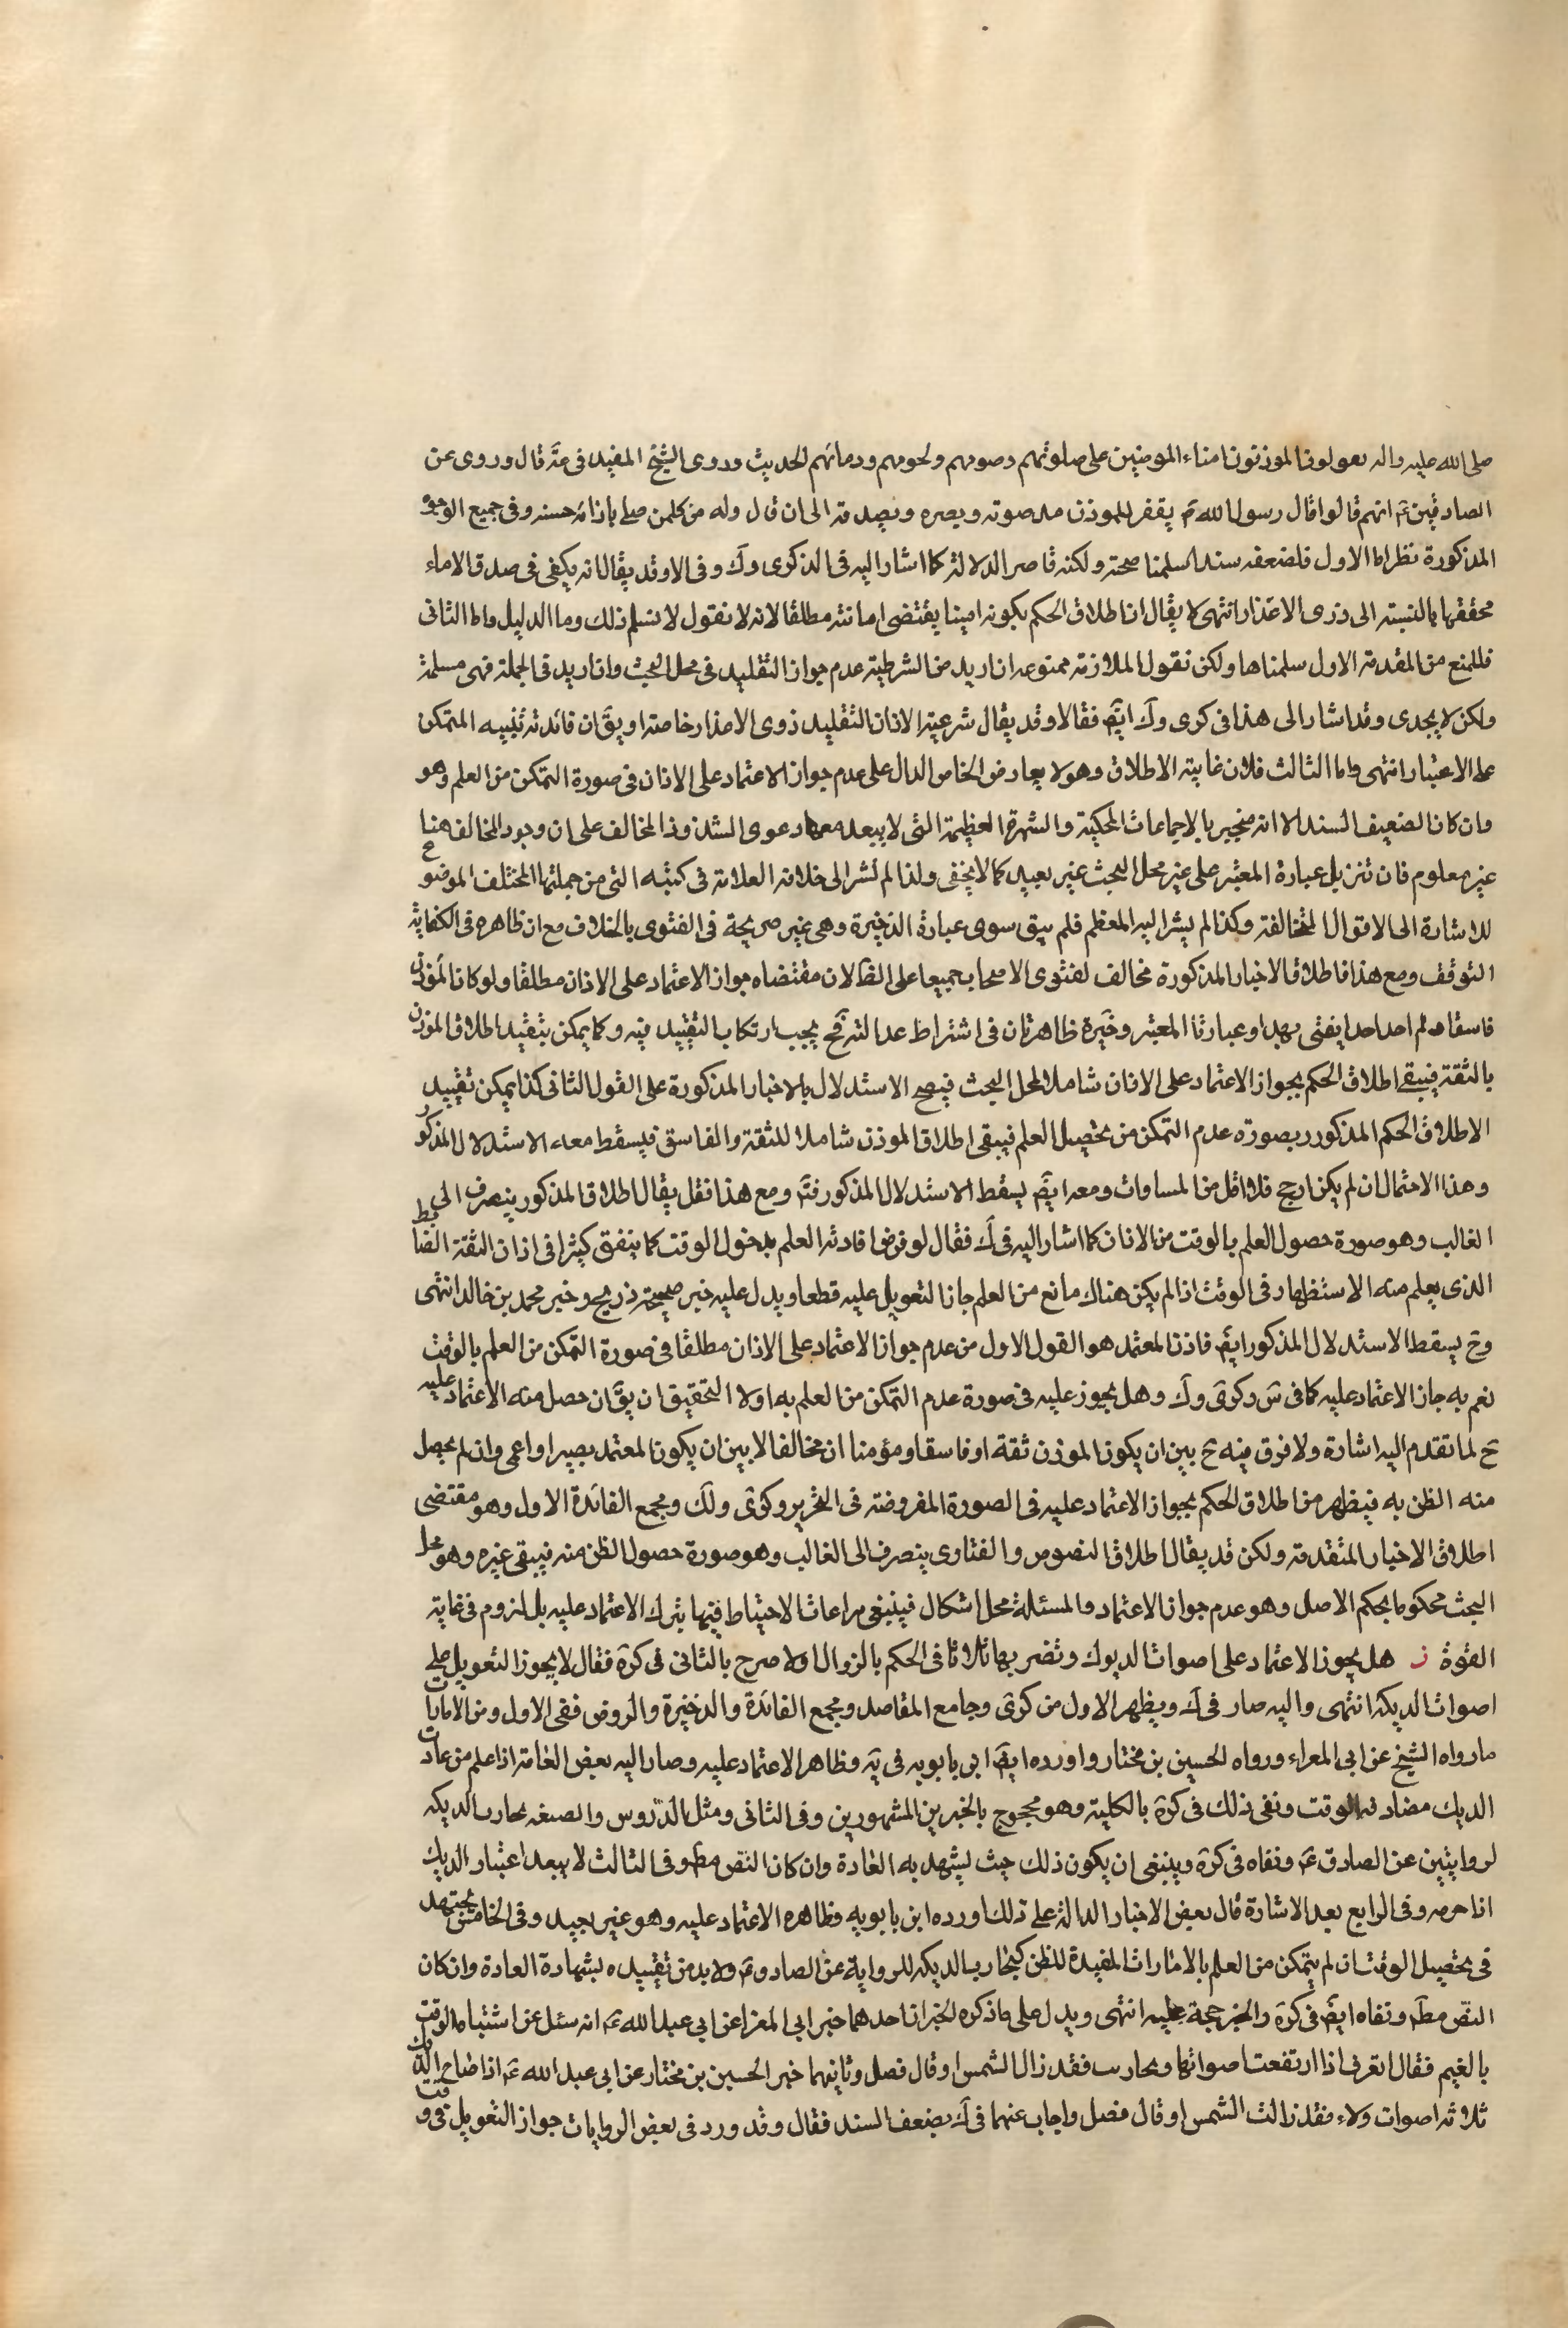 صلى الله عليه واله يقولون المؤذنون امناء المومنين على صلوتهم وصومهم ولحومهم ودمائهم الحديث وروى الشيخ المفيد في عة قال وروى عن
الصادقين ع انهم قالوا قال رسول الله ص يغفر للموذن مد صوته وبصره ويصدقه الى ان قال وله من كل من صلى باذانه حسنه وفى جميع الوجوه
المذكورة نظر اما الاول فلضعفه سندا سلمنا صحته ولكنه قاصر الدلالة كما اشار اليه فى الذكرى وك وفى الاول قد يقال انه يكفى فى صدق الامناء
تحققها بالنسبة الى ذوى الاعذار انتهى لا يقال ان اطلاق الحكم بكونه امينا يقتضى امانته مطلقا لانه لا نقول لا نسلم ذلك وما الدليل واما الثانى
فللمنع من المقدمة الاول سلمناها ولكن نقول الملازمة ممنوعه ان اريد من الشرطية عدم جواز التقليد فى محل البحث وان اريد فى الجملة فهى مسلمة
ولكن لا يجدى وقد اشار الى هذا فى كرى وك ايض فقالا وقد يقال شرعية الاذان لتقليد ذوى الاعذار خاصة او يق ان فائدته تنبيه المتمكن
على الاعتبار انتهى واما الثالث فلان غايته الاطلاق وهو لا يعارض الخاص الدال على عدم جواز الاعتماد على الاذان فى صورة التمكن من العلم وهو
وان كان الضعيف السند الا انه منجبر بالاجماعات المحكية والشهرة العظيمة التى لا يبعد معها دعوى الشذوذ المخالف على ان وجود المخالف هنا
غير معلوم فان تنزيل عبارة المعتبر على غير محل البحث غير بعيد كما لا يخفى ولذا لم تشر الى خلافه العلامة فى كتبه التى من جملتها المختلف الموضوع
للاشارة الى الاقوال المخالفة وكذا لم يشر اليه المعظم فلم يبق سوى عبارة الذخيرة وهى غير صريحة فى الفتوى بالخلاف مع ان ظاهره فى الكفاية
التوقف ومع هذا فاطلاق الاخبار المذكورة مخالف لفتوى الاصحاب جميعا على الظ لان مقتضاه جواز الاعتماد على الاذان مطلقا ولو كان المؤذن
فاسقا ولم اجد احدا يفتى بهذا وعبارتا المعتبر وخيرة ظاهرتان فى اشتراط عدالته فح يجب ارتكاب التقييد فيه وكما يمكن تقييد اطلاق المؤذن
بالثقة فيبقى اطلاق الحكم بجواز الاعتماد على الاذان شاملا لمحل البحث فيصح الاستدلال بالاخبار المذكورة على القول الثانى كذا يمكن تقييد
الاطلاق الحكم المذكور بصورة عدم التمكن من تحصيل العلم فيبقى اطلاق الموذن شاملا للثقة والفاسق فيسقط معه الاستدلال المذكور
وهذا الاحتمال ان لم يكن ارجح فلا اقل من المساوات ومعه ايض يسقط الاستدلال المذكور فتم ومع هذا فقد يقال اطلاق المذكور ينصرف الى
الغالب وهو صورة حصول العلم بالوقت من الاذان كما اشار اليه فى ك فقال لو فرض افادته العلم بدخول الوقت كما يتفق كثيرا فى اذان الثقة الضابط
الذى يعلم منه الاستظهار فى الوقت اذا لم يكن هناك مانع من العلم جاز التعويل عليه قطعا ويدل عليه خبر صحيحة ذريح وخبر محمد بن خالد انتهى
وح يسقط الاستدلال المذكور ايض فاذن المعتمد هو القول الاول من عدم جواز الاعتماد على الاذان مطلقا فى صورة التمكن من العلم بالوقت
نعم به جاز الاعتماد عليه كما فى ش وكرى وك وهل يجوز عليه فى صورة عدم التمكن من العلم به اولا التحقيق ان يق ان حصل منه الاعتماد عليه
ح لما تقدم اليه اشارة ولا فرق فيه ح بين ان يكون الموذن ثقة او فاسقا ومؤمنا ان مخالفا لا بين ان يكون المعتمد بصيرا او اعمى وان لم يحصل
منه الظن به فيظهر من اطلاق الحكم بجواز الاعتماد عليه فى الصورة المفروضة فى التحرير وكرى ولك ومجمع الفائدة الاول وهو مقتضى
اطلاق الاخبار المتقدمة ولكن قد يقال اطلاق النصوص والفتاوى ينصرف الى الغالب وهو صورة حصول الظن منه فيبقى غيره وهو محل
البحث محكوما بحكم الاصل وهو عدم جواز الاعتماد والمسئلة محل اشكال فينبغى مراعات الاحتياط فيها بترك الاعتماد عليه بل لزوم فى غاية
القوة ز هل يجوز الاعتماد على اصوات الديوك وتضر بها ثلاثا فى الحكم بالزوال اولا صرح بالثانى فى كرة فقال لا يجوز التعويل على
اصوات الديكه انتهى واليه صار فى ك ويظهر الاول من كرى وجامع المقاصد ومجمع الفائدة والذخيرة والروض ففى الاول ومن الامارات
ما رواه الشيخ عن ابى المعراء ورواه الحسين بن مختار واورده ايض ابن بابويه فى يه وظاهر الاعتماد عليه وصار اليه بعض العامة اذا علم من عادت
الديك مضادفه الوقت ونفى ذلك فى كرة بالكلية وهو محجوج بالخبرين المشهورين وفى الثانى ومثل الدروس والصنعه تجارب الديكه
لروايتين عن الصادق ع ونفاه فى كرة وينبغى ان يكون ذلك حيث يشهد به العادة وان كان النص مط وفى الثالث لا يبعد اعتبار الديك
اذا حرمه وفى الرابع بعد الاشارة قال بعض الاخبار الدالة على ذلك اورده ابن بابويه وظاهره الاعتماد عليه وهو غير بعيد وفى الخامس يجتهد
فى تحصيل الوقت ان لم يتمكن من العلم بالامارات المفيدة للظن كتجارب الديكه للرواية عن الصادق ع ولا بد من تقييده بشهادة العادة وان كان
النص مط ونفاه ايض فى كرة والخبر حجة عليه انتهى ويدل على ما ذكره الخبران احدهما خبر ابى المعزا عن ابى عبد الله ع انه سئل عن اشتباه الوقت
بالغيم فقال اتعرف اذا ارتفعت اصواتها وتجاربت فقد زال الشمس او قال فصل وثانيهما خبر الحسين بن مختار عن ابى عبد الله ع اذا صاح الديك
ثلاثه اصوات ولاء فقد زالت الشمس او قال فصل واجاب عنهما فى ك بضعف السند فقال وقد ورد فى بعض الروايات جواز التعويل فى وقت